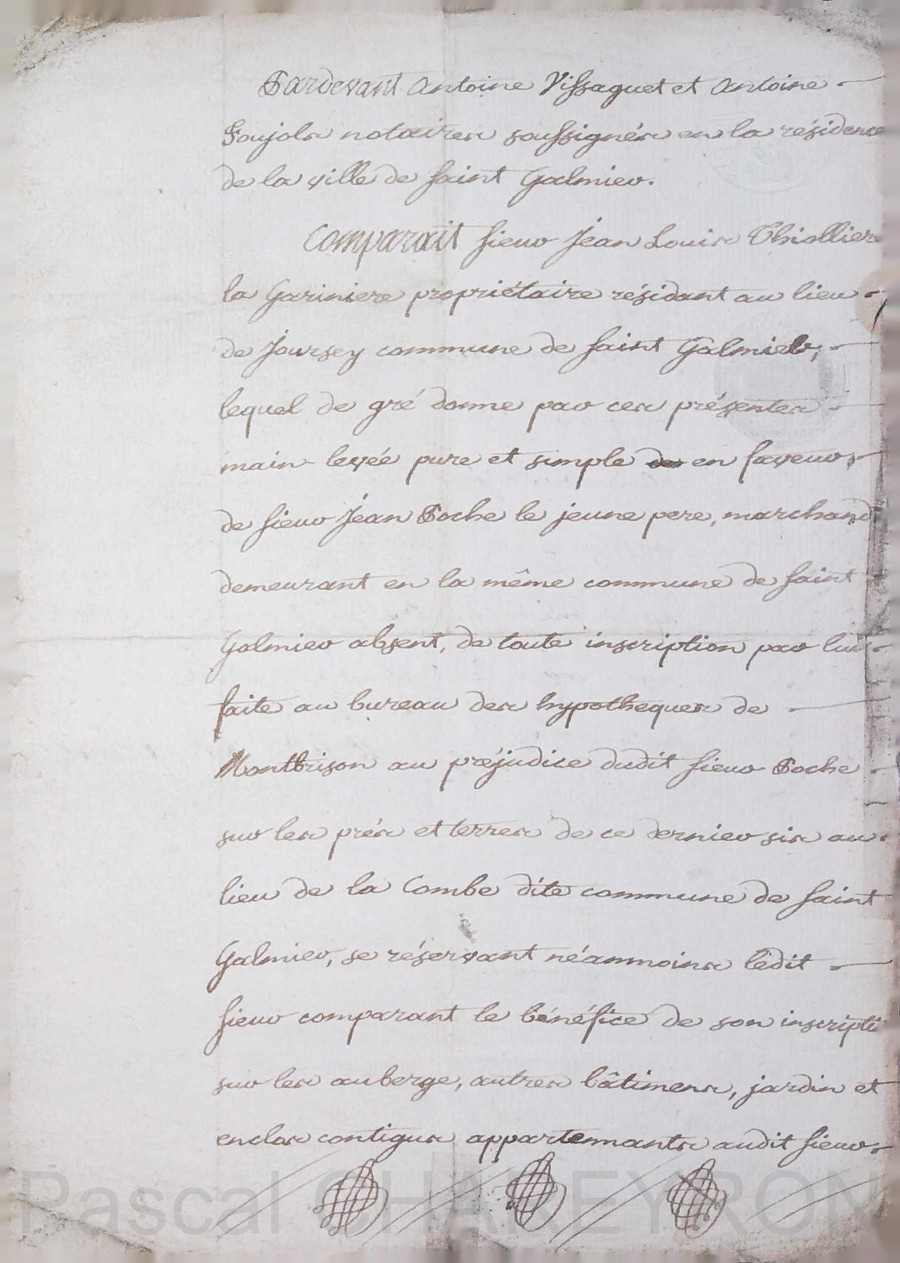 Pardevant Antoine Vissaguet et Antoine
Poujols notaires soussignés en la résidence
de la ville de Saint Galmier.
Comparait Sieur Jean Louis Thiolliere
la Gariniere propriétaire résidant au lieu
de Joursey commune de Saint Galmier,
lequel de gré donne par ces présentes
main levée pure et simple de en faveur
de Sieur Jean Poche le jeune pere, marchand
demeurant en la même commune de Saint
Galmier absent, de toute inscription par lui
faite au bureau des hypotheques de
Montbrison au préjudice dudit Sieur Poche
sur les prés et terres de ce dernier sis au
lieu de la Combe dite commune de Saint
Galmier, se réservant néammoins ledit
Sieur comparant le bénéfice de son inscripti
sur les auberge, autres bâtimens, jardin et
enclos contigus appartennants audit Sieur
Pascal CHAREYRON